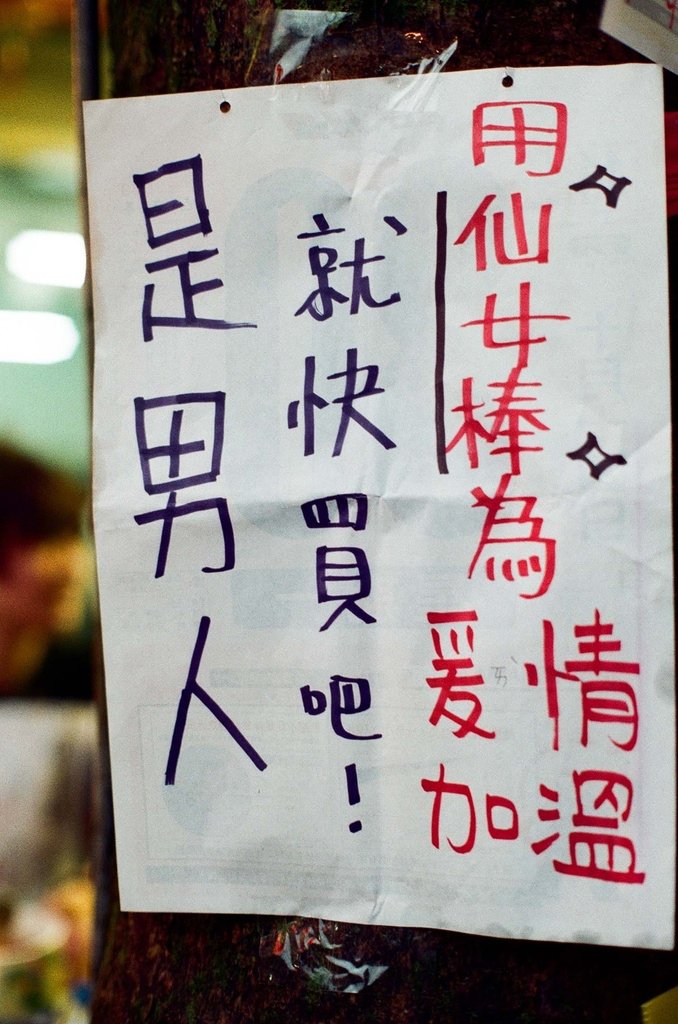 用仙女棒為
爰ㄞˋ情
加溫
是男人
就快買吧!